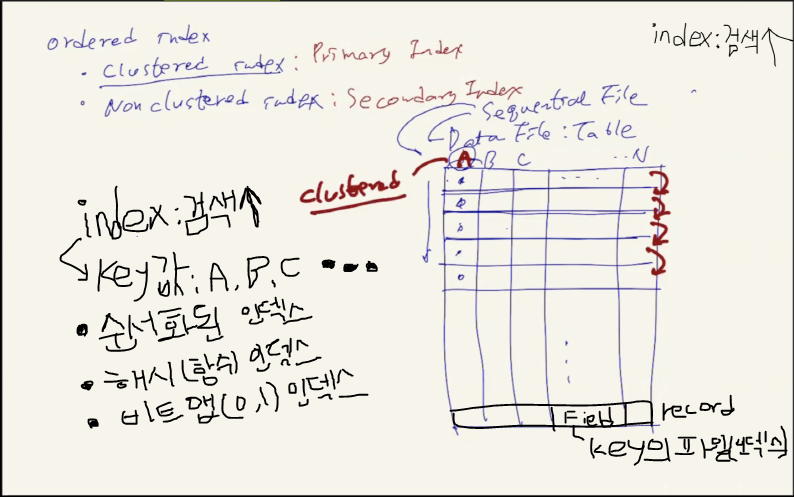 ordered index
• clustered index : Primary Index
• Nonclustered index : Secondary Index
index:검색↑
Sequential File
Data File : Table
A B C ... N
clustered
index:검색↑
key값: A, B, C ...
• 순서화된 인덱스
• 해시(함수) 인덱스
• 비트맵(0,1) 인덱스
Field
record
key의 파일(인덱스)